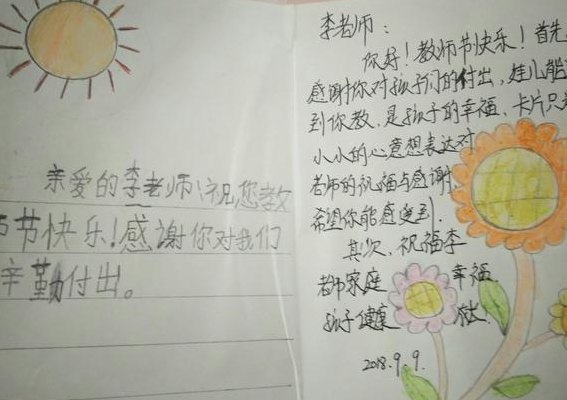 亲爱的李老师,祝您教
节快乐!感谢你对我们
辛勤付出。
李老师:
你好!教师节快乐!首先
感谢你对孩子们的付出,娃儿能
到你教,是孩子的幸福,卡片只
小小的心意想表达对
老师的祝福与感谢,
希望你能感受到.
其次,祝福李
老师家庭 幸福
孩子健康
2018.9.9.